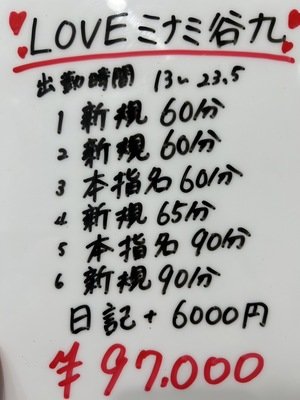 LOVEミナミ谷九
出勤時間 13~23.5
1 新規 60分
2 新規 60分
3 本指名 60分
4 新規 65分
5 本指名 90分
6 新規 90分
日記 + 6000円
¥97.000